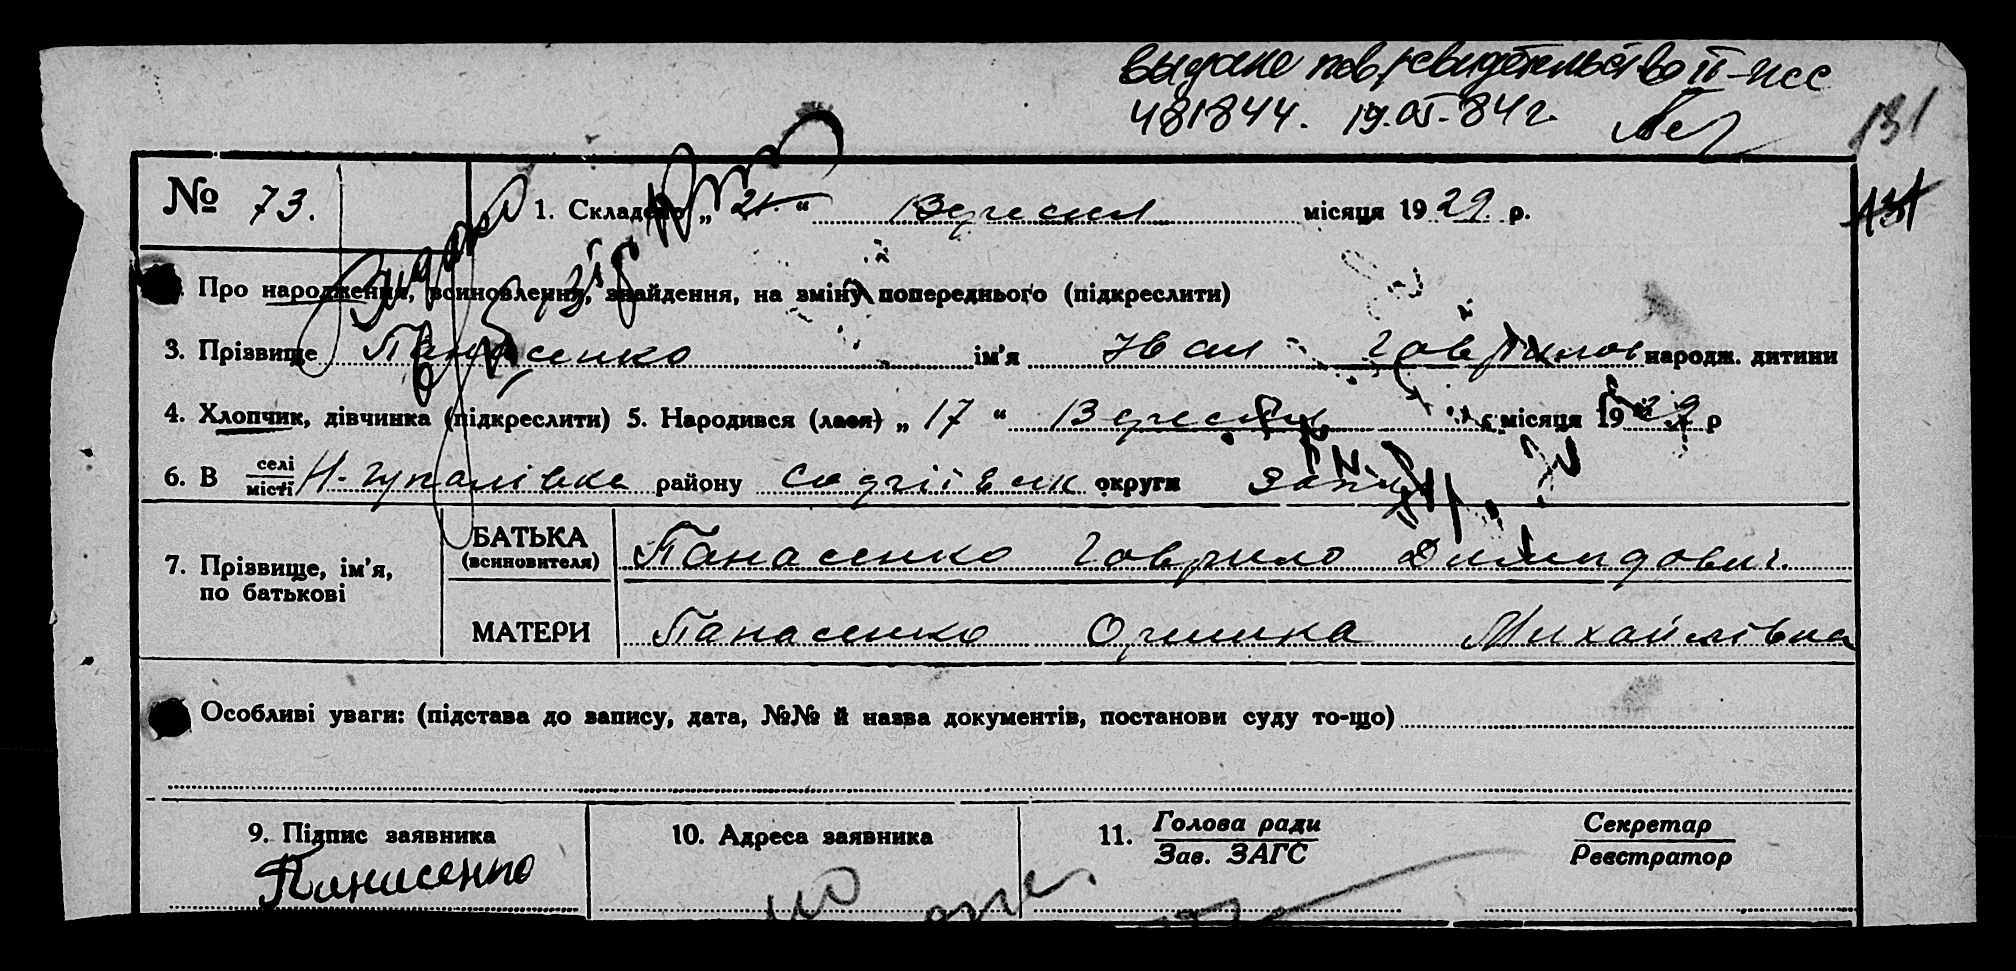 выдане пов. свидетельство II-ЖС
481844. 19.XI.84г.
131
№ 73. 1. Складено „ 21. “ Вересня місяця 1929 р.
131
Про народження, всиновлення, знайдення, на зміну попереднього (підкреслити)
3. Прізвище Панасенко ім’я Іван Гаврилов народж. дитини
4. Хлопчик, дівчинка (підкреслити) 5. Народився (лася) „ 17 “ Вересня місяця 1929 р
6. В селі місті Н-Гупалівка району округи Запор
7. Прізвище, ім’я, по батькові
БАТЬКА (всиновителя) Панасенко Гаврило Дімидович.
МАТЕРИ Панасенко Оришка Михайлівна
Особливі уваги: (підстава до запису, дата, №№ й назва документів, постанови суду то-що)
9. Підпис заявника 10. Адреса заявника 11. Голова ради Секретар
Зав. ЗАГС Реєстратор
Панасенко